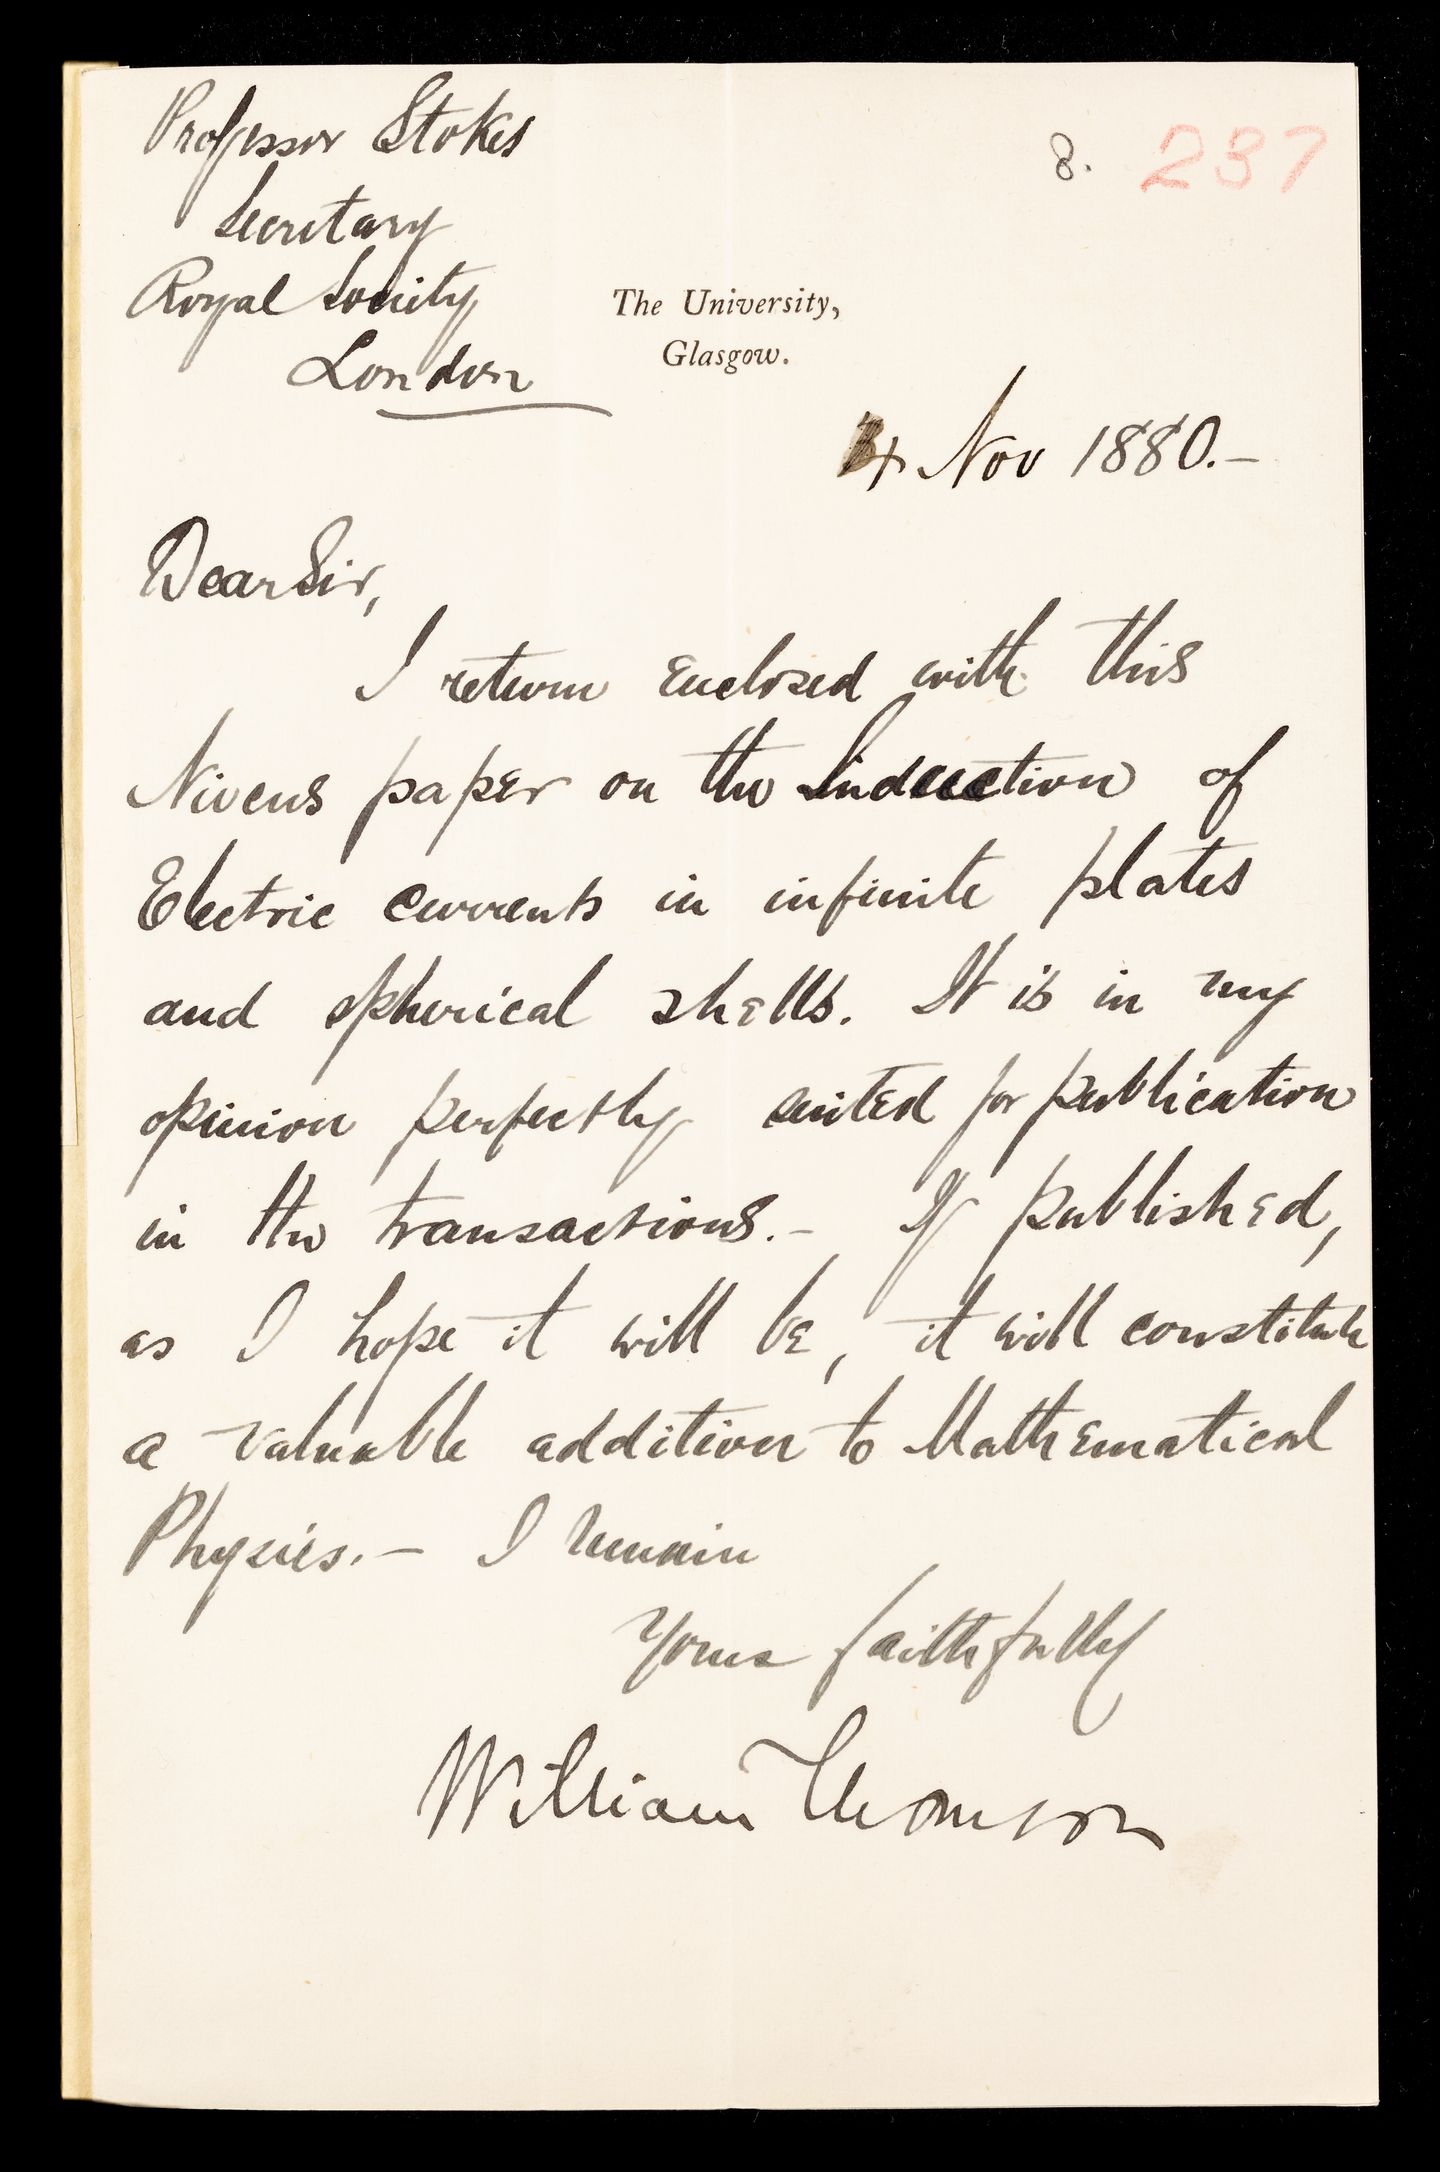 Professor Stokes
8. 237
Secretary
Royal Society
London
The University,
Glasgow.
4 Nov 1880.-
Dear Sir,
I return enclosed with this
Nivens paper on the Induction of
Electric currents in infinite plates
and spherical shells. It is in my
opinion perfectly suited for publication
in the transactions.- If published,
as I hope it will be, it will constitute
a valuable addition to Mathematical
Physics.- I remain
Yours faithfully
William Thomson